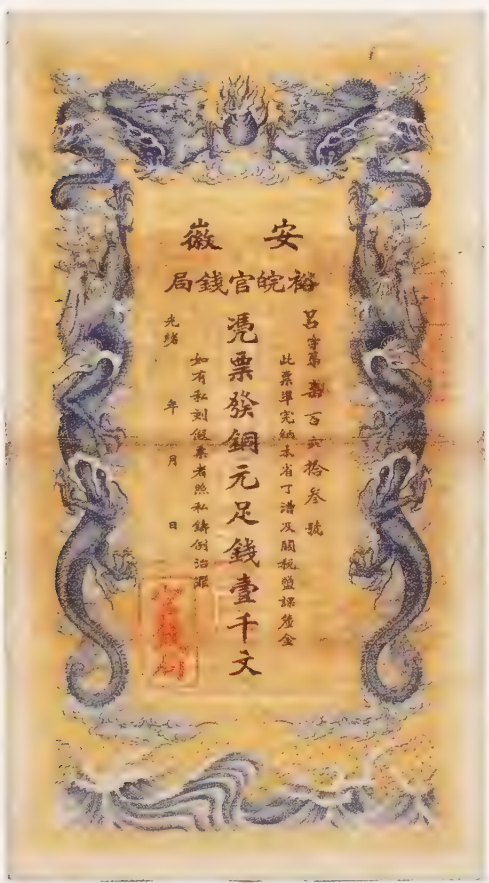 安徽
裕皖官錢局
呂字第柒百貳拾叁號
此票準完納本省丁漕及關稅鹽課釐金
憑票發銅元足錢壹千文
如有私刻假票者照私鑄例治罪
光緒 年 月 日